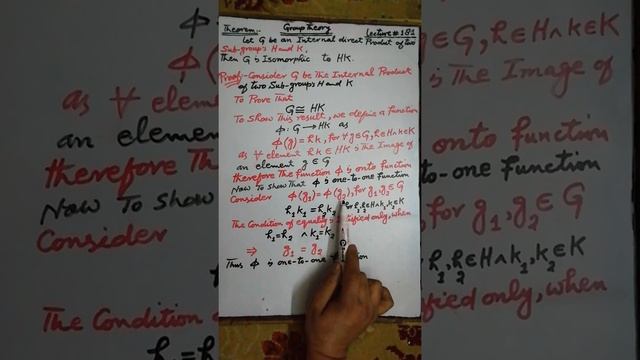 Theorem:- Group theory Lecture # 181
Let G be an Internal direct Product of two
Sub-group's H and K,
Then G is Isomorphic to HK.
Proof:- Consider G be the Internal Product
of two Sub-group's H and K
To Prove That
G ≅ HK
To Show This result, we define a function
ϕ: G → HK as
ϕ(g) = hk, for ∀ g∈G, h∈H ∧ k∈K
as ∀ element hk∈HK is The Image of
an element g∈G
therefore The function ϕ is onto function
Now To Show That ϕ is one-to-one function
Consider ϕ(g₁) = ϕ(g₂), for g₁, g₂ ∈ G
h₁k₁ = h₂k₂ for h₁, h₂∈H ∧ k₁, k₂∈K
The Condition of equality only, when
h₁ = h₂ ∧ k₁ = k₂
⇒ g₁ = g₂
Thus ϕ is one-to-one